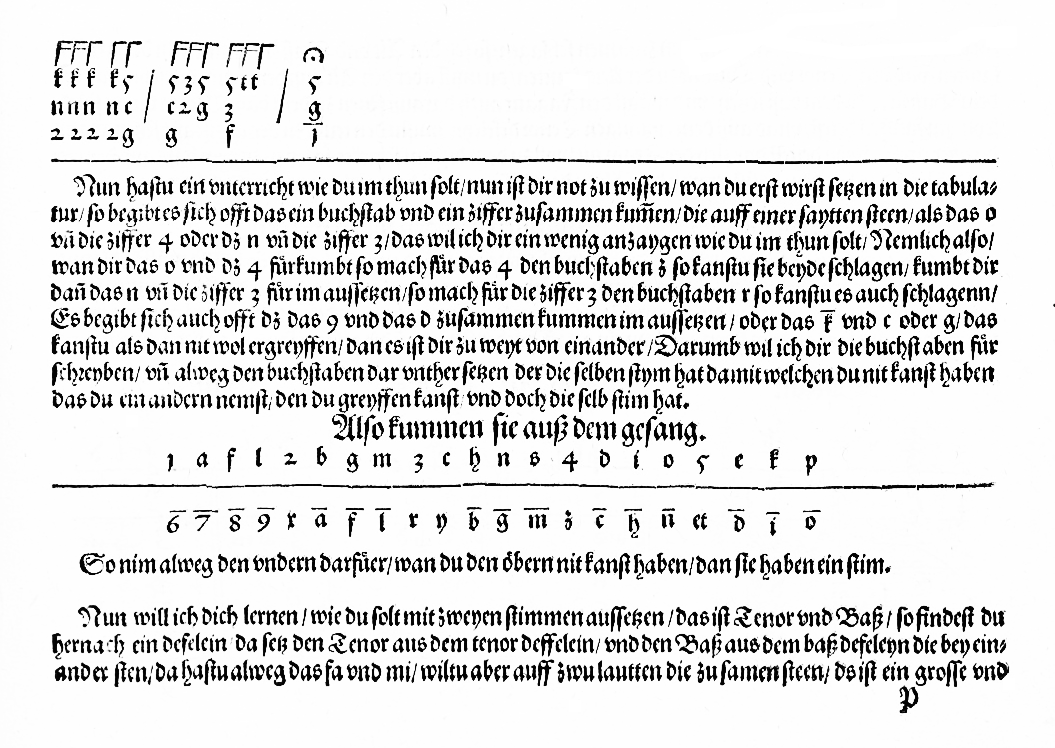 k k k k 5 / 5 3 5 5 t t / 5
n n n n c / c 2 g 3 / g
2 2 2 2 g g f 1̅
Nun hastu ein vnterricht wie du im thun solt/nun ist dir not zu wissen/wan du erst wirst setzen in die tabula-
tur/so begibt es sich offt das ein buchstab vnd ein ziffer zusammen kum̄en/die auff einer saytten steen/als das o
vn̄ die ziffer 4 oder dz n vn̄ die ziffer 3/das wil ich dir ein wenig anzaygen wie du im thun solt/Nemlich also/
wan dir das o vnd dz 4 fürkumbt so mach für das 4 den buchstaben z so kanstu sie beyde schlagen/kumbt dir
dan̄ das n vn̄ die ziffer 3 für im aussetzen/so mach für die ziffer 3 den buchstaben r so kanstu es auch schlagenn/
Es begibt sich auch offt dz das 9 vnd das d zusammen kummen im aussetzen/oder das k̅ vnd c oder g/das
kanstu als dan nit wol ergreyffen/dan es ist dir zu weyt von einander/Darumb wil ich dir die buchstaben für
schreyben/vn̄ alweg den buchstaben dar vnther setzen der die selben stym hat damit welchen du nit kanst haben
das du ein andern nemst/den du greyffen kanst vnd doch die selb stim hat.
Also kummen sie auß dem gesang.
1 a f l 2 b g m 3 c h n s 4 d i o 5 e k p
6̅ 7̅ 8̅ 9̅ x a̅ f̅ l̅ r y b̅ g̅ m̅ z c̅ h̅ n̅ et d̅ i̅ o̅
So nim alweg den vndern darfüer/wan du den öbern nit kanst haben/dan sie haben ein stim.
Nun will ich dich lernen/wie du solt mit zweyen stimmen aussetzen/das ist Tenor vnd Baß/so findest du
hernach ein defelein da setz den Tenor aus dem tenor deffelein/vnd den Baß aus dem baß defeleyn die bey ein-
ander sten/da hastu alweg das fa vnd mi/wiltu aber auff zwu lautten die zu samen steen/ds ist ein grosse vnd
P